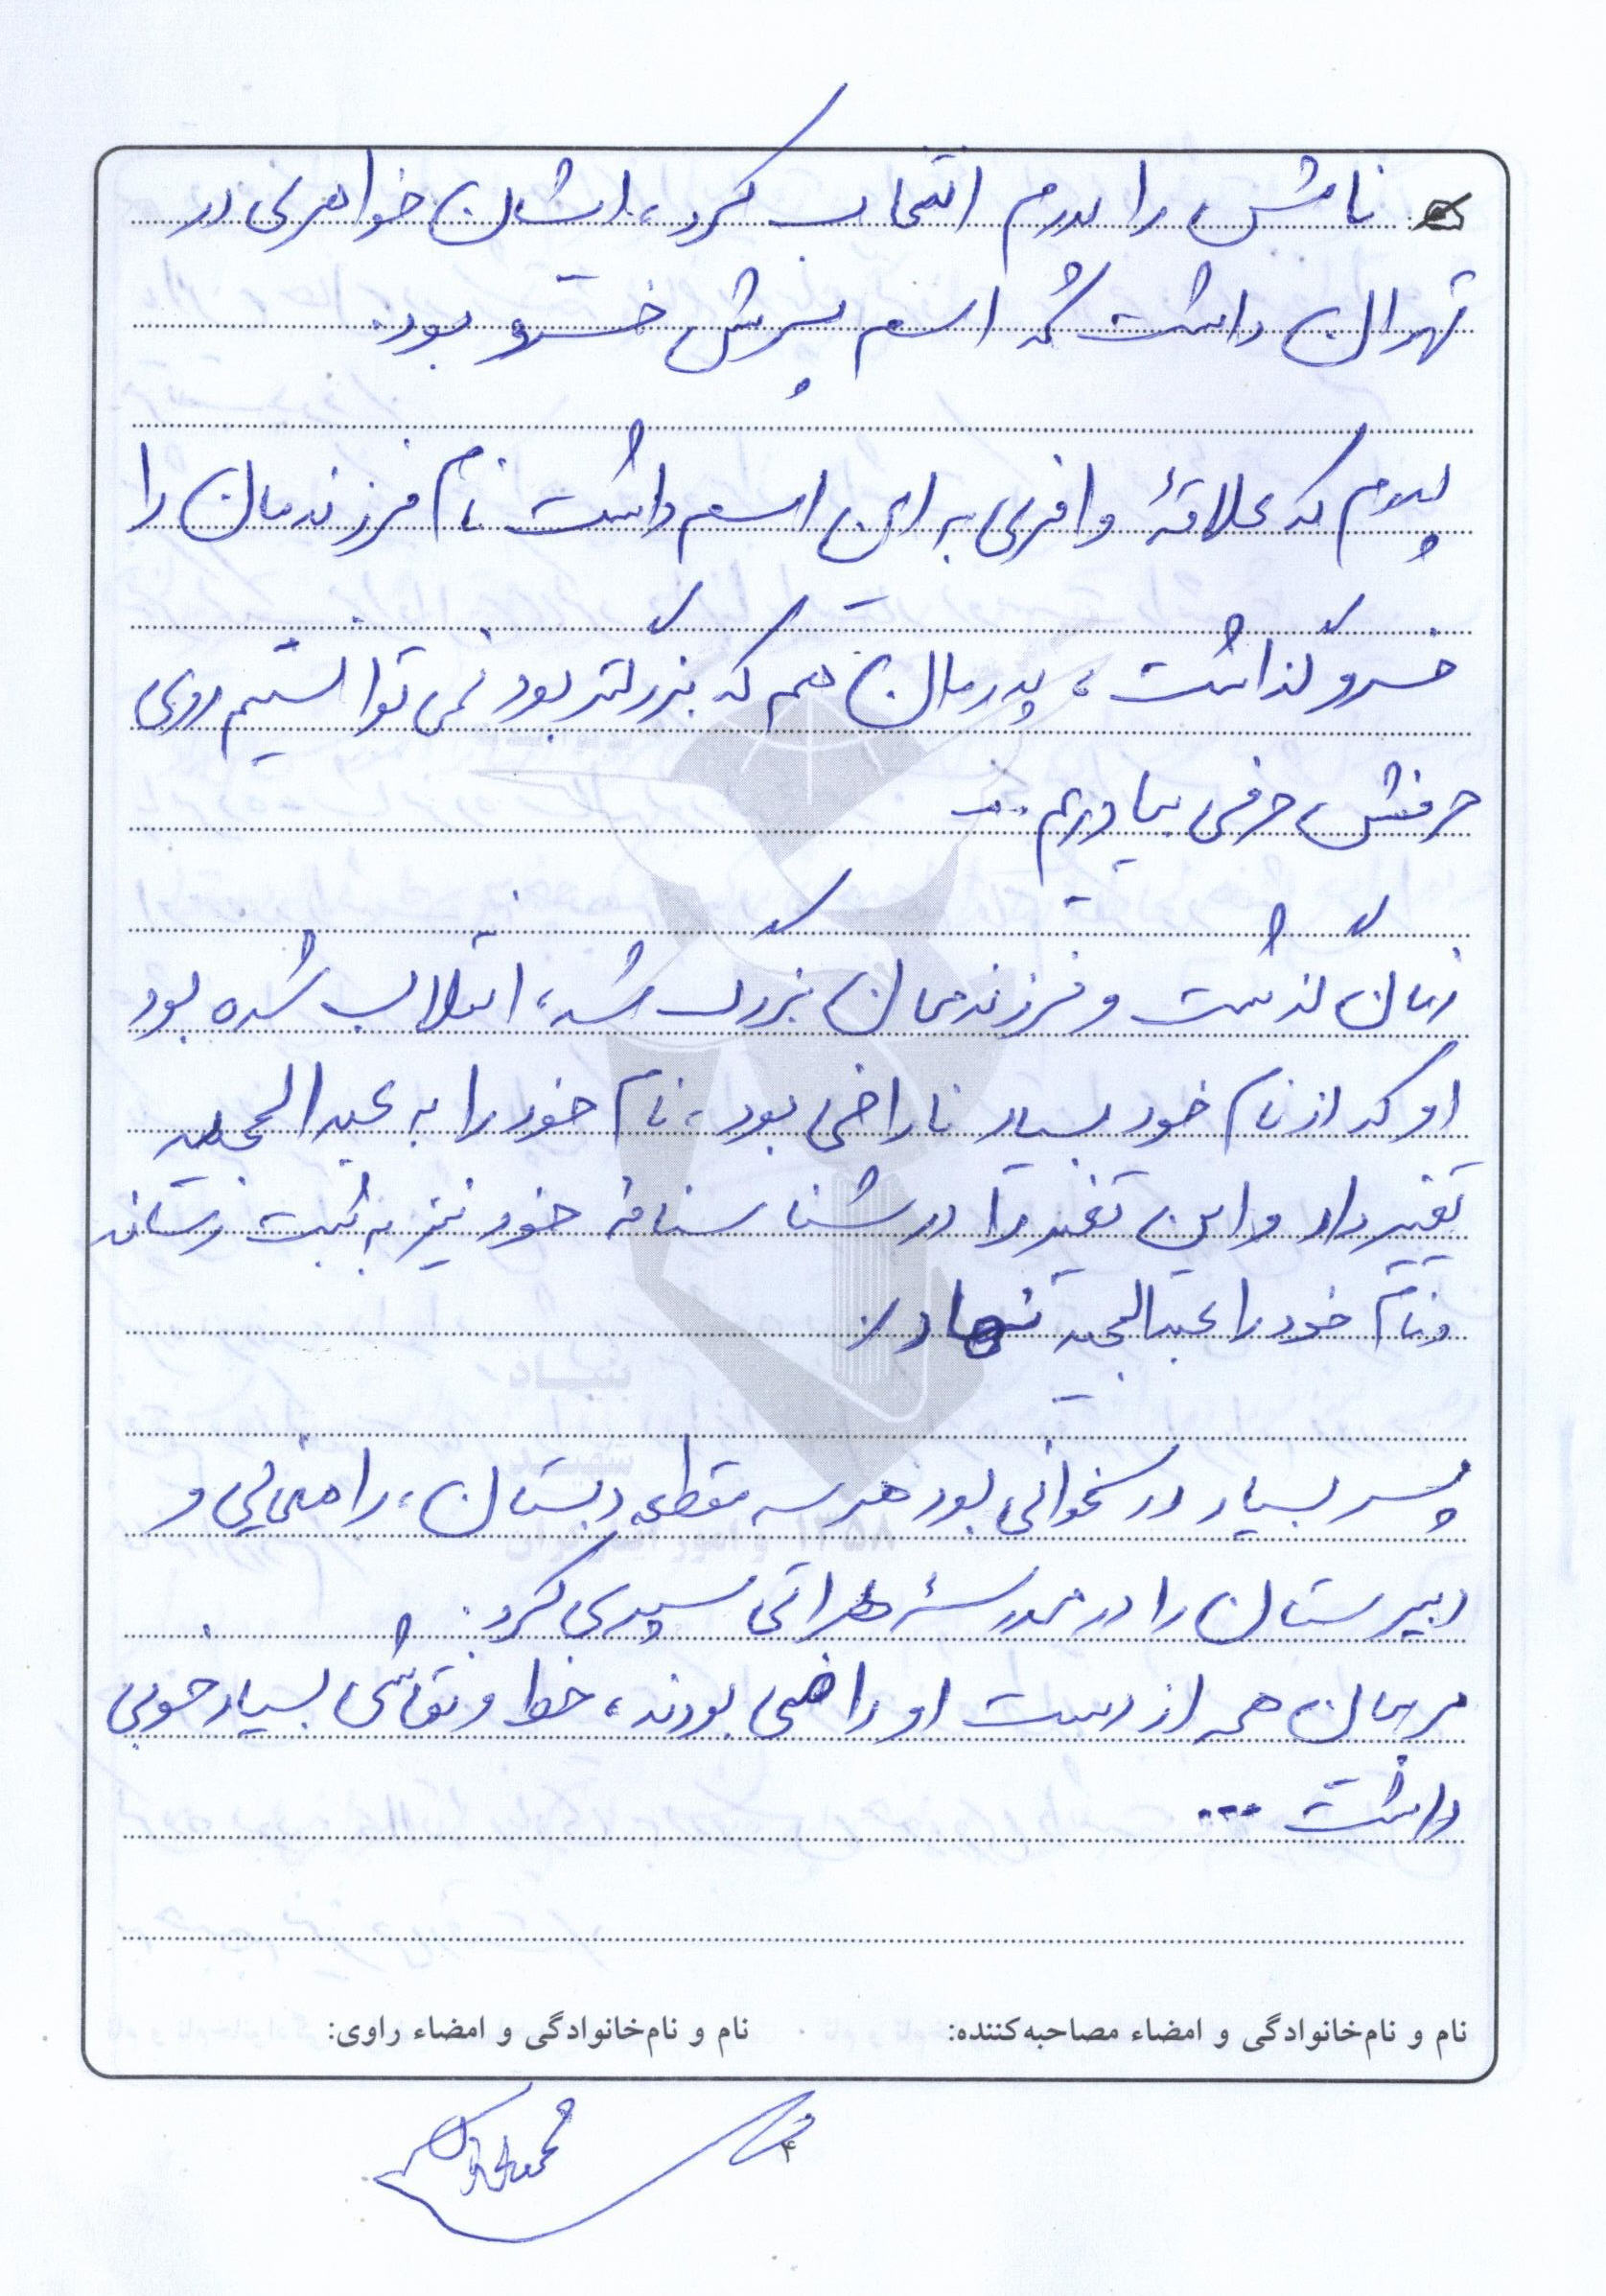 نامش را پدرم انتخاب کرد، ایشان خواهری در
تهران داشت که اسم پسرش خسرو بود.
پدرم که علاقهٔ وافری به این اسم داشت نام فرزندمان را
خسرو گذاشت، پدرمان هم که بزرگتر بود نمی توانستیم روی
حرفش حرفی بیاوریم...
زمان گذشت و فرزندمان بزرگ شد، انقلاب شده بود
او که از نام خود بسیار ناراضی بود، نام خود را به عبدالمجید
تغییر داد و این تغییر را در شناسنامه خود نیز به ثبت رساند
و نام خود را عبدالمجید نهاد.
پسر بسیار درسخوانی بود هر سه مقطع دبستان، راهنمایی و
دبیرستان را در مدرسهٔ هراتی سپری کرد.
مربیان همه از دست او راضی بودند، خط و نقاشی بسیار خوبی
داشت ...
نام و نام‌خانوادگی و امضاء مصاحبه‌کننده: نام و نام‌خانوادگی و امضاء راوی:
۴
بنیاد
شهید
و امور ایثارگران